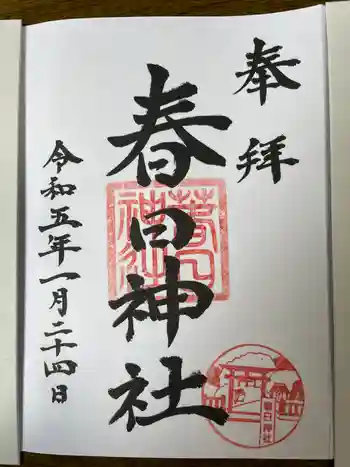 奉拝
春日神社
令和五年一月二十四日
春日神社
春日神社